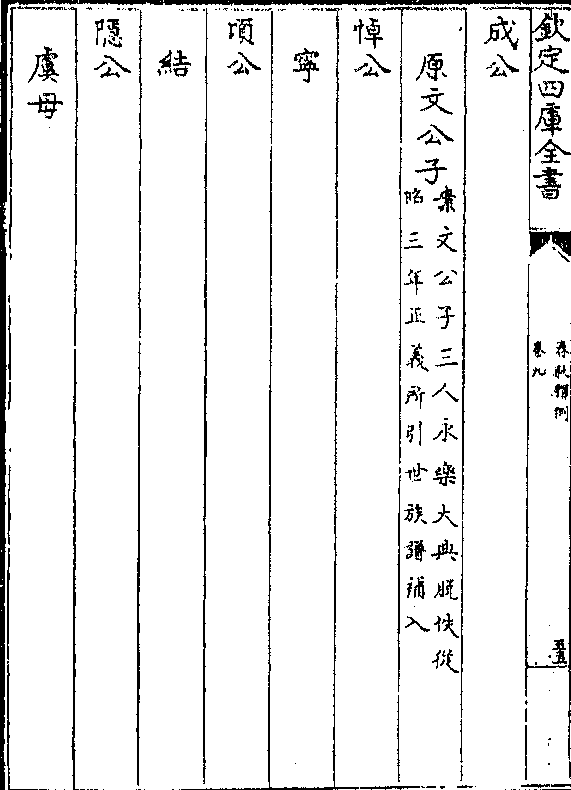 欽定四庫全書
春秋釋例
卷九
成公
原文公子
案文公子三人永樂大典脫佚從
昭三年正義所引世族譜補入
悼公
寧
項公
結
隱公
虞母